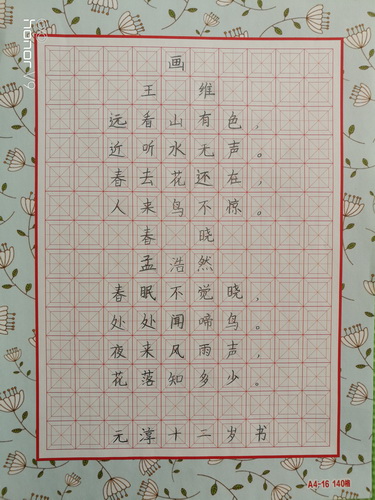 画
王 维
远看山有色，
近听水无声。
春去花还在，
人来鸟不惊。
春 晓
孟浩然
春眠不觉晓，
处处闻啼鸟。
夜来风雨声，
花落知多少。
元淳十二岁书
A4-16 140格
honor V9